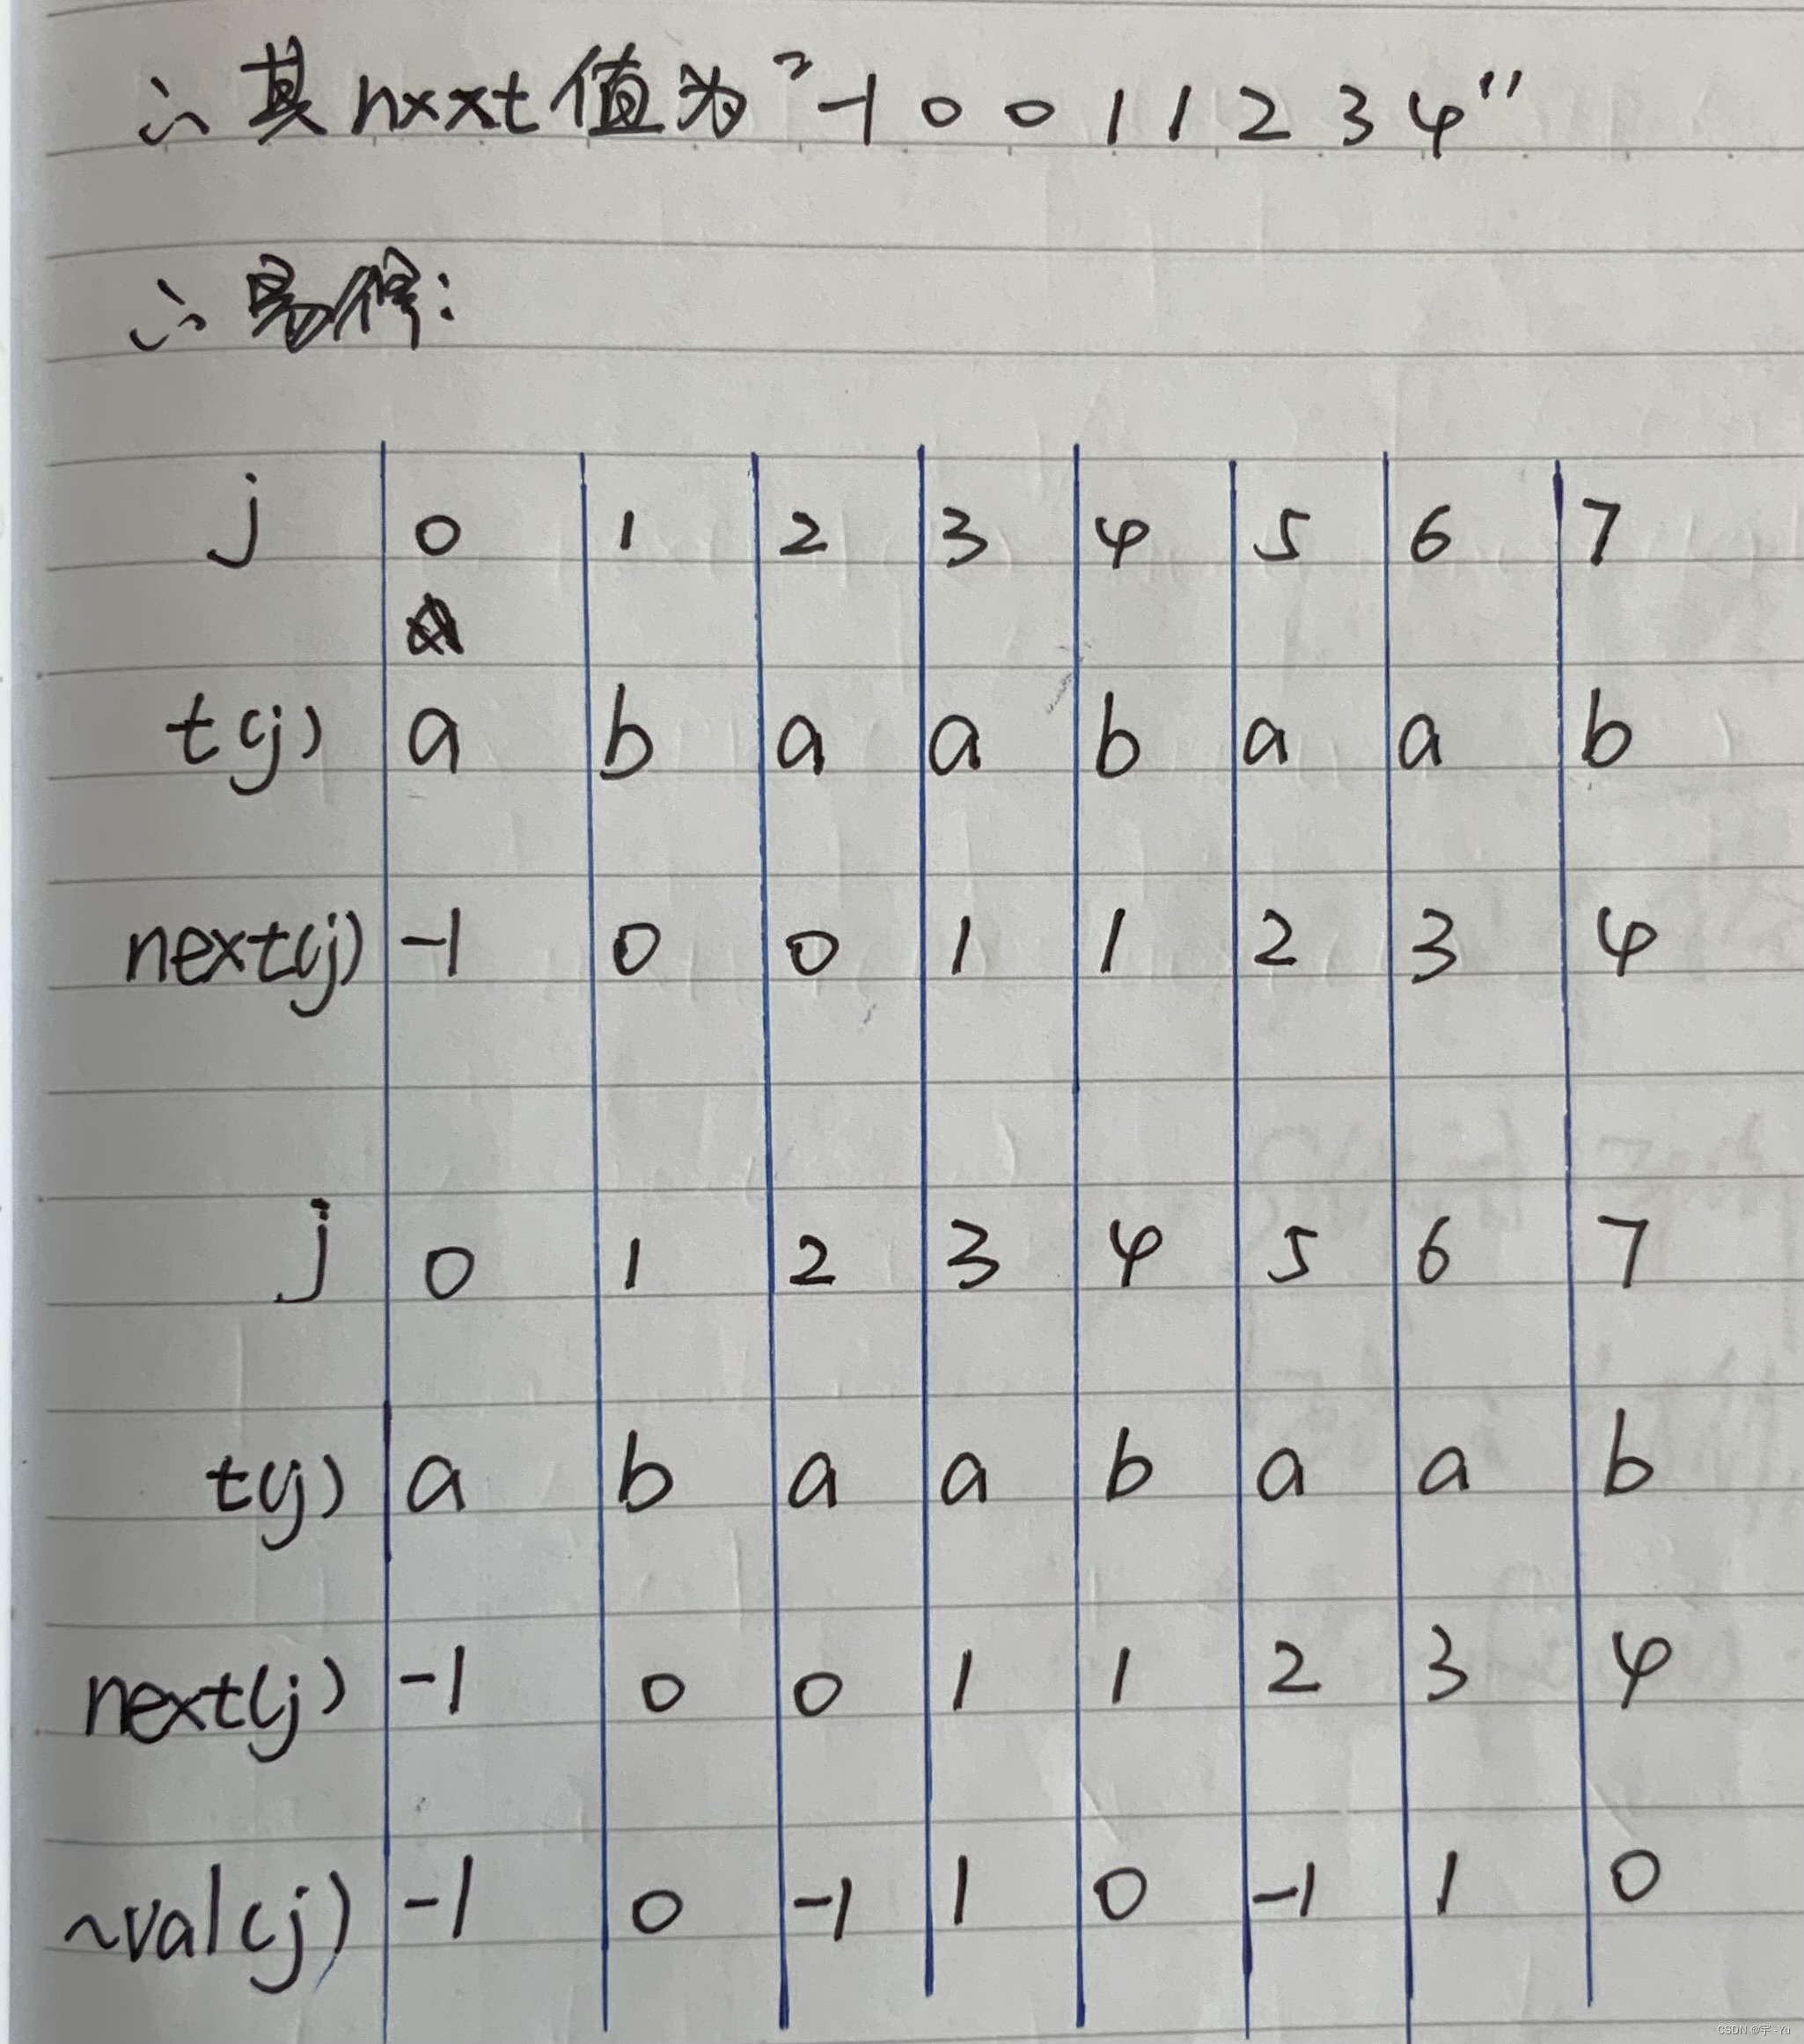 ∴ 其 nxxt 值为 "-1 0 0 1 1 2 3 4"
∴ 易得:
j 0 1 2 3 4 5 6 7
t(j) a b a a b a a b
next(j) -1 0 0 1 1 2 3 4
j 0 1 2 3 4 5 6 7
t(j) a b a a b a a b
next(j) -1 0 0 1 1 2 3 4
~val(j) -1 0 -1 1 0 -1 1 0
CSDN @宇-Yu